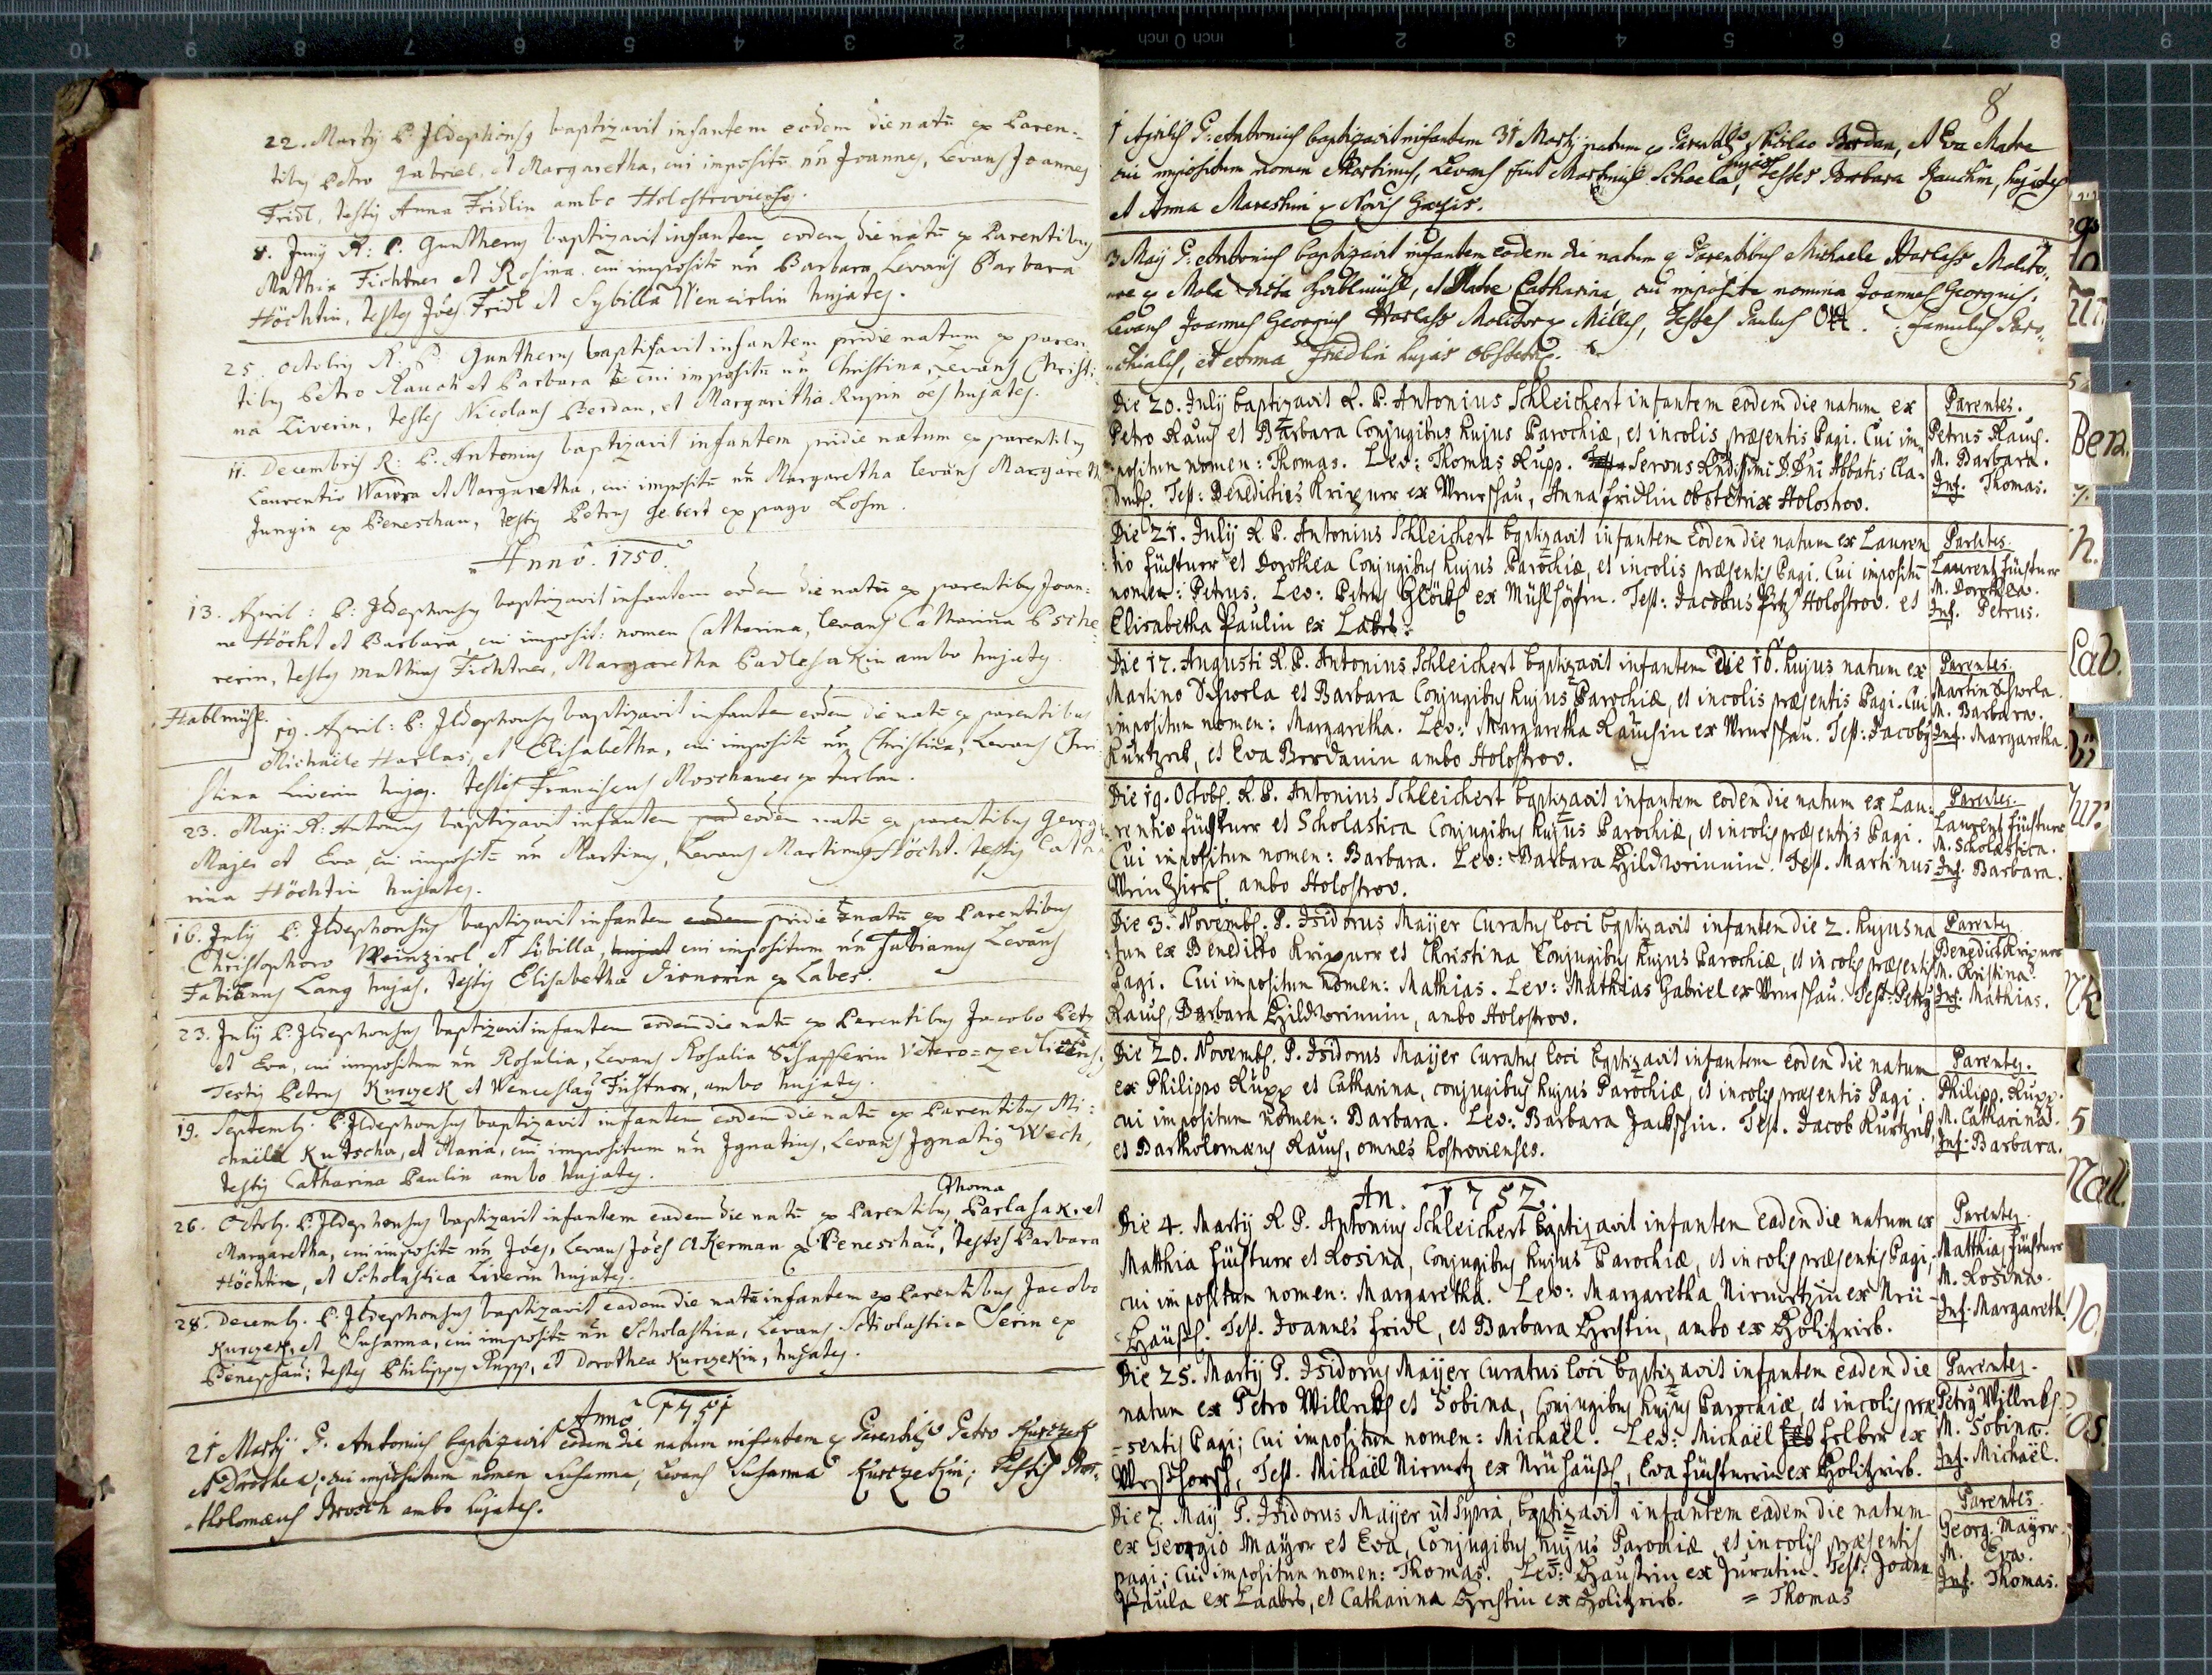 22. Martÿ P. Ildephonsg baptizavit infantem eodem die natū ex Paren-
tibg Petro Gabriel, et Margaretha, cui impositū nn̄ Joannes, Levans Joannes
Fridl, testis Anna Fridlin ambo Holostrovienses.
8. Junÿ R: P. Guntherus baptizavit infantem eodem die natū ex Parentibus
Mathia Fichtner et Rosina, cui impositū nn̄ Barbara Levans Barbara
Höchtin, testes Jōes Fridl et Sybilla Wenzirlin hujates.
25. Octobris R: P: Guntherus baptisavit infantem pridie natum ex paren-
tibus Petro Rauch et Barbara cui impositū nn̄ Christina, Levans Christi-
na Liverin, testes Nicolaus Berdan, et Margaritha Rupin oēs hujates.
11. Decembris R: P. Antonius baptizavit infantem pridie natum ex parentibus
Laurentio Wawra et Margaretha, cui impositū nn̄ Margaretha levans Margareth
Jungin ex Beneschau, testis Petrus Gebert ex pago Losm.
Anno 1750.
13. April: P: Ildephonsus baptizavit infantem eodem die natū ex parentibus Joan-
ne Höcht et Barbara, cui imposit: nomen Catharina, levans Catharina Psche
rerin, testes Mathias Fichtner, Margaretha Padlesakin ambo hujates.
Hablmühl.
19. April: P: Ildephonsus baptizavit infantem eodem die natū ex parentibus
Michaele Harlas, et Elisabetha, cui impositū nn̄ Christina, Levans Chri-
stina Liverin hujas. testis Franciscus Moschauer ex Turban.
23. Maji R: Antonius baptizavit infantem eodem natū ex parentibus Georg
Majer et Eva, cui impositū nn̄ Martinus, Levans Martinus Höcht. testis Catha
rina Höchtin hujates.
16. Julÿ P. Ildephonsus baptizavit infantem eodem pridie natū ex Parentibus
Christophoro Weinzirl et Sibilla, hujat cui impositum nn̄ Fabianus Levans
Fabianus Lang hujas, testis Elisabetha ex Labes.
23. Julÿ P. Ildephonsus baptizavit infantem eodem die natū ex Parentibus Jacobo Petz
et Eva, cui impositum nn̄ Rosalia, Levans Rosalia Schafflerin
Testis Petrus Kurczek et Wenceslaus Füstner, ambo hujates.
19. Septemb. P. Ildephonsus baptizavit infantem eodem die natū ex Parentibus Mi-
chaële Kutscha, et Maria, cui impositum nn̄ Ignatius, Levans Ignatig Wech,
testis Catharina Paulin ambo hujates.
Thoma
26. Octob. P. Ildephonsus baptizavit infantem eadem die natū ex Parentibus Parlasak, et
Margaretha, cui impositū nn̄ Jōes, Levans Jōes Akerman ex Beneschau, testes Barbara
Höchtin, et Scholastica Liverin hujates.
28. Decemb. P. Ildephonsus baptizavit eadem die natū infantem ex Parentibus Jacobo
Kurczek, et Susanna, cui impositū nn̄ Scholastica, Levans Scholastica Serin ex
Beneschau; testes Philippus Rupp, et Dorothea Kurczekin, hujates.
Anno 1751
21 Martÿ P. Antonius baptizavit eodem die natum infantem ex Parentibus Petro Kurczek
et Dorothea; cui impositum nomen Susanna, Levans Susanna Kurczekin; testis Bar-
tholomæus Brosch ambo hujates.
8
1 Aprilis P: Antonius baptizavit infantem 31 Martÿ natum ex Parentibus Nicolao Berdan, et Eva Matre
cui impositum nomen Martinus, Levans fuit Martinus Schoela, hujas Testes Barbara Rauchin, hujates
et Anna Mareshin ex Novis
3 Maÿ P: Antonius baptizavit infantem eodem die natum ex Parentibus Michaele Harlass Molito-
re ex Mola dicta Hablmühl, et Matre Catharina, cui imposita nomina Joannes Georgius,
Levans Joannes Georgius Harlass Molitor ex Milles, Testes Paulus Ott. famulus Paro-
chialis, et Anna Fridlin hujas Obstetrix.
Die 20. Julÿ baptizavit R. P. Antonius Schleichert infantem eodem die natum ex
Petro Rauch et Barbara Conjugibus hujus Parochiæ, et incolis præsentis Pagi. Cui im-
positum nomen: Thomas. Lev: Thomas Rupp. Servus Rndissimi D. Dni Abbatis Cla-
Test: Benedictus Krippner ex Wrurschau, Anna Fridlin obstetrix Holostrov.
Parentes.
Petrus Rauch.
M. Barbara.
Inf. Thomas.
Die 21. Julÿ R. P. Antonius Schleichert baptizavit infantem Eodem die natum ex Lauren
tio Füchtner et Dorothea Conjugibus hujus Parochiæ, et incolis præsentis Pagi. Cui impositū
nomen: Petrus. Lev: Petrus Glöckl ex Mühlhöfen. Test: Jacobus Pitz Holostrov. et
Elisabetha Paulin ex Labes.
Parentes.
Laurent Füchtner
M. Dorothea.
Inf. Petrus.
Die 17. Augusti R. P. Antonius Schleichert baptizavit infantem die 16. hujus natum ex
Martino Schwrla et Barbara Conjugibus hujus Parochiæ, et incolis præsentis Pagi. Cui
impositum nomen: Margaretha. Lev: Margaretha Rauchin ex Wrurschau. Test: Jacobg
Kurtzek, et Eva Berdanin ambo Holostrov.
Parentes.
Martin Schwrla.
M. Barbara.
Inf. Margaretha.
Die 19. Octob. R. P. Antonius Schleichert baptizavit infantem eodem die natum ex Lau-
rentio Füchtner et Scholastica Conjugibus hujus Parochiæ, et incolis præsentis Pagi.
Cui impositum nomen: Barbara. Lev: Barbara Hildweinin. Test. Martinus
Weinzierl, ambo Holostrov.
Parentes.
Laurent Füchtner
M. Scholastica.
Inf. Barbara.
Die 3. Novemb. P. Isidorus Maÿer Curatus loci baptizavit infantem die 2. hujus na
tum ex Benedicto Krippner et Christina Conjugibus hujus Parochiæ, et incolis præsentis
Pagi. Cui impositum nomen: Mathias. Lev: Mathias Gabriel ex Wrurschau. Test: Petrg
Rauch, Barbara Hildweinin, ambo Holostrov.
Parentes
Benedict Krippner
M. Kristina.
Inf. Mathias.
Die 20. Novemb. P. Isidorus Maÿer Curatus loci baptizavit infantem eodem die natum
ex Philippo Rupp et Catharina, conjugibus hujus Parochiæ, et incolis præsentis Pagi;
cui impositum nomen: Barbara. Lev: Barbara Jackschin. Test. Jacob Kurtzek,
et Bartholomæus Rauch, omnes hostrovienses.
Parentes.
Philipp. Rupp.
M. Catharina.
Inf: Barbara.
An. 1752.
Die 4. Martÿ R. P. Antonius Schleichert baptizavit infantem eadem die natum ex
Matthia Füchtner et Rosina, Conjugibus hujus Parochiæ, et incolis præsentis Pagi,
cui impositum nomen: Margaretha. Lev: Margaretha Nirmrtzin ex Neu-
Häusl. Test. Joannes Fridl, et Barbara Hechtin, ambo ex Holitzrieb.
Parentes
Matthias Füchtner
M. Rosina.
Inf. Margareth.
Die 25. Martÿ P. Isidorus Maÿer Curatus loci baptizavit infantem eadem die
natum ex Petro Willrikl et Sobina, Conjugibus hujus Parochiæ, et incolis præ
sentis Pagi; Cui impositum nomen: Michaël. Lev: Michaël Felber ex
Test. Michaël Nirmrtz ex Neuhäusl, Eva Füchtnerin ex Holitzrieb.
Parentes.
Petrg Willrikl.
M. Sobina.
Inf. Michaël.
Die 7. Maÿ P. Isidorus Maÿer ut supra, baptizavit infantem eadem die natum
ex Georgio Mayer et Eva, Conjugibus hujus Parochiæ, et incolis præsentis
pagi; cui impositum nomen: Thomas. Lev: Haustin ex Juratin. Test: Joann
Paula ex Laabes, et Catharina Hechtin ex Holitzrieb. = Thomas
Parentes
Georg. Maÿer.
M. Eva.
Inf. Thomas.
Ben.
Lab.
Nall